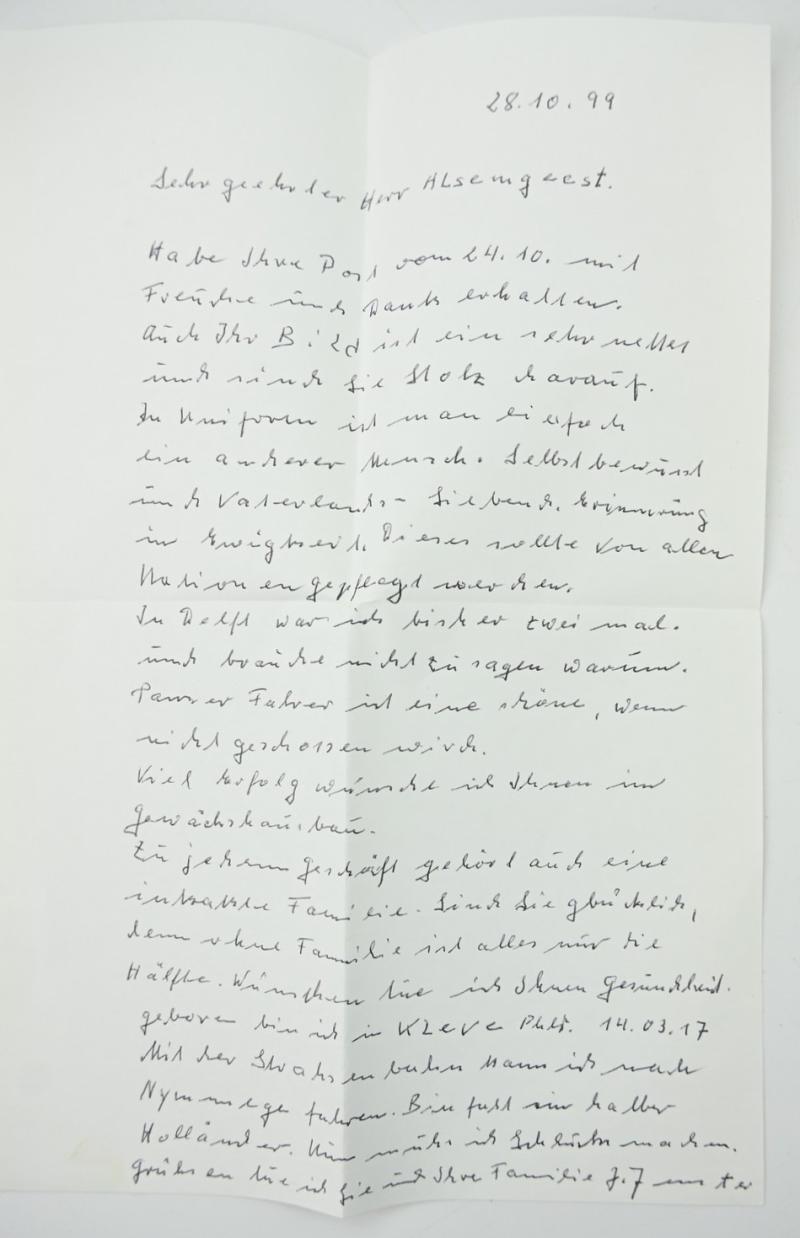 28.10.99
Sehr geehrter Herr Alsemgeest.
Habe Ihre Post vom 24.10. mit
Freude und Dank erhalten.
Auch Ihr Bild ist ein sehr nettes
und sind Sie Stolz darauf.
In Uniform ist man einfach
ein anderer Mensch. Selbstbewusst
und Vaterlands-Liebend. Erinnerung
in Ewigkeit. Dieses sollte von allen
Nationen gepflegt werden.
In Delft war ich bisher zwei mal.
und brauche nicht zu sagen warum.
Panzer Fahrer ist eine schöne, wenn
nicht geschossen wird.
Viel Erfolg wünsche ich Ihnen im
Gewächshausbau.
Zu jedem Geschäft gehört auch eine
intakte Familie. Sind Sie glücklich,
denn ohne Familie ist alles nur die
Hälfte. Wünschen tue ich Ihnen Gesundheit.
geboren bin ich in Kleve 14.03.17
Mit der Strahsenbahn kann ich nach
Nymmege fahren. Bin fast ein halber
Holländer. Nun muhs ich Schluhs machen.
Grühsen tue ich Sie und Ihre Familie